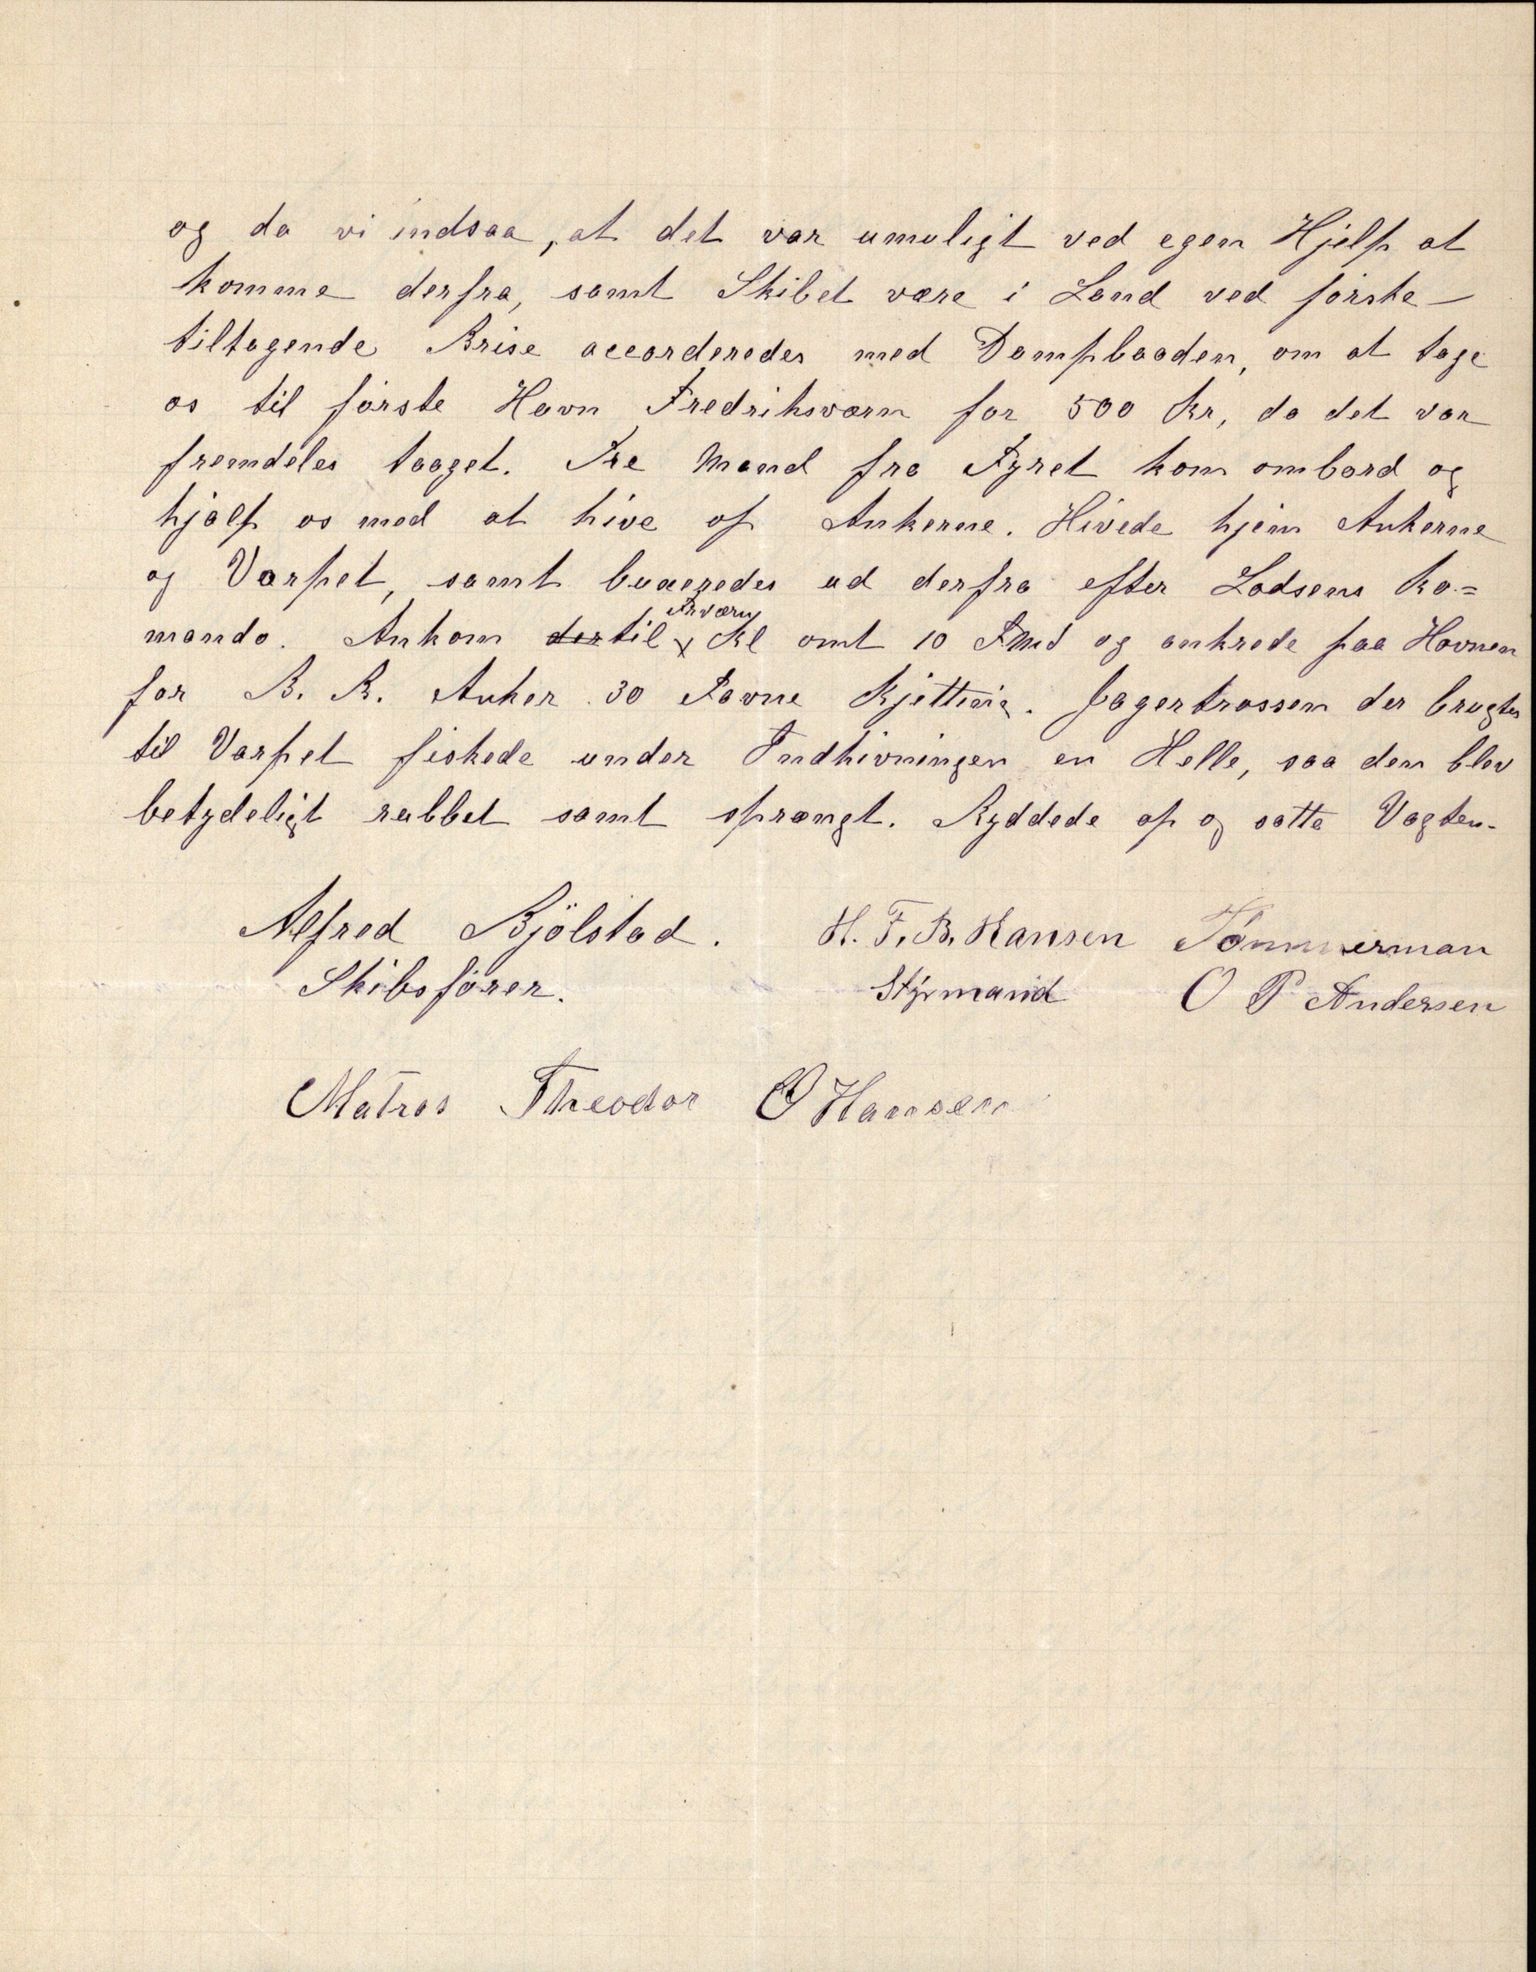 og da vi indsaa, at det var umuligt ved egen Hjelp at
komme derfra, samt Skibet være i Land ved første
tiltagende Brise accorderedes med Dampbaaden, om at tage
os til første Havn Fredriksværn for 500 Kr, da det var
fremdeles taaget. Tre Mand fra Fyret kom ombord og
hjalp os med at hive op Ankerne. Hivede hjem Ankerne
og Varpet, samt buxeredes ud derfra efter Lodsens Ko=
mando. Ankom dertil × Frværn Kl omt 10 FMd og ankrede paa Havnen
for B. B. Anker 30 Favne Kjetting. Jagertrossen der brugtes
til Varpet fiskede under Indhivningen en Helle, saa den blev
betydeligt rubbet samt sprængt. Ryddede op og satte Vagten.
Alfred Bjölstad. H. F. B. Hansen Tömmerman
Skibsfører. Styrmand O P Andersen
Matros Theodor O Hansen